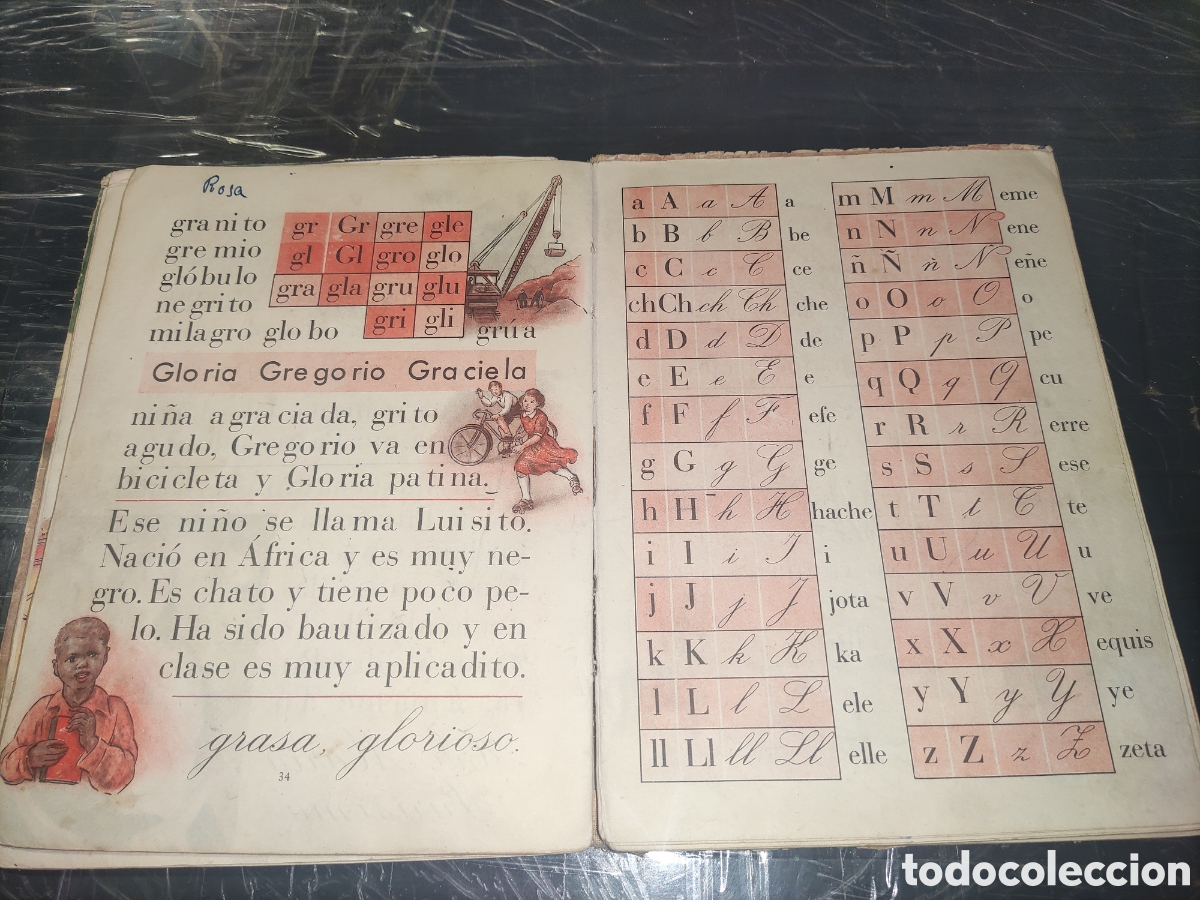 Rosa
gra ni to
gre mio
gló bu lo
ne gri to
mi la gro glo bo
gr Gr gre gle
gl Gl gro glo
gra gla gru glu
gri gli
grú a
Glo ria Gre go rio Gra cie la
ni ña a gra cia da, gri to
a gu do, Gre go rio va en
bi ci cle ta y Glo ria pa ti na.
Ese ni ño se lla ma Lui si to.
Na ció en África y es muy ne-
gro. Es cha to y tie ne po co pe-
lo. Ha si do bau ti za do y en
cla se es muy a pli ca di to.
grasa, glorioso.
34
a A a A a
b B b B be
c C c C ce
ch Ch ch Ch che
d D d D de
e E e E e
f F f F efe
g G g G ge
h H h H hache
i I i I i
j J j J jota
k K k K ka
l L l L ele
ll Ll ll Ll elle
m M m M eme
n N n N ene
ñ Ñ ñ Ñ eñe
o O o O o
p P p P pe
q Q q Q cu
r R r R erre
s S s S ese
t T t T te
u U u U u
v V v V ve
x X x X equis
y Y y Y ye
z Z z Z zeta
todocoleccion